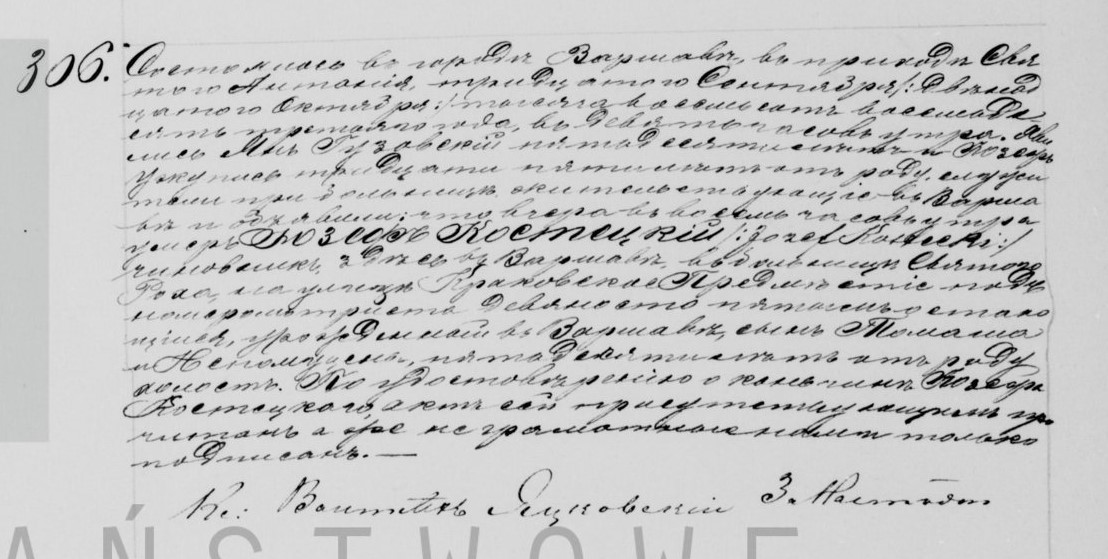 306.
Состоялось въ городѣ Варшавѣ, въ приходѣ Свя
того Антонія, тридцатого Сентября /: Двѣнад
цатого Октября :/ тысяча восемьсотъ восемьде
сятъ третьяго года, въ девять часовъ утра. Яви
лись Янъ Гузовскій пятидесяти лѣтъ и Іозефъ
тридцати пяти лѣтъ отъ роду, служи
тели при больницѣ жительствующіе въ Варша
вѣ и объявили; что вчера въ восемь часовъ утра
умеръ Іозефъ Костецкій /: Józef Kostecki :/
чиновникъ, здѣсь въ Варшавѣ, въ больницѣ Святого
Роха, на улицѣ Краковское Предмѣстіе подъ
номеромъ триста девяносто пятымъ остаю
щійся, урожденный въ Варшавѣ, сынъ Томаша
и пятидесяти лѣтъ отъ роду
холостъ. По удостовѣренію о кончинѣ Іозефа
Костецкаго актъ сей присутствующимъ про
читанъ а неграмотные нами только
подписанъ. —
Кс: Яцковскій За
AŃSTWOWE